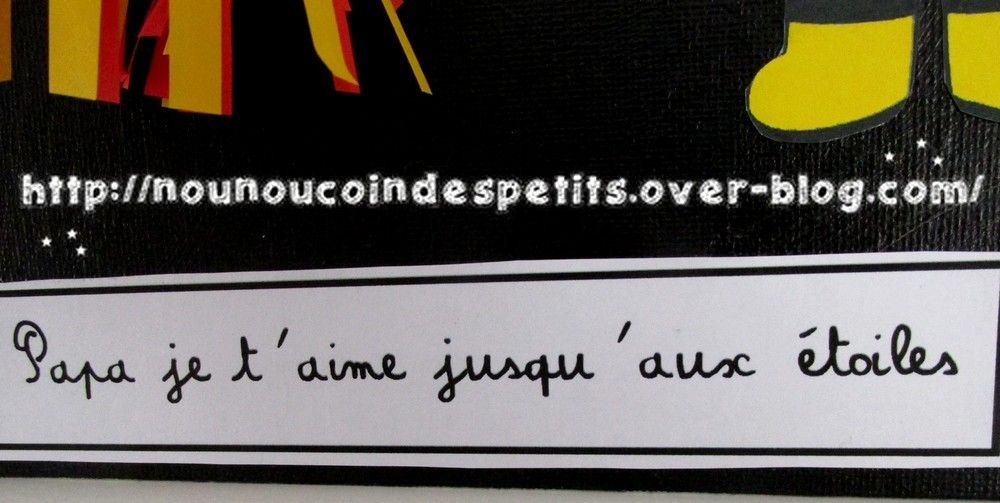 http://nounoucoindespetits.over-blog.com/
Papa je t'aime jusqu'aux étoiles